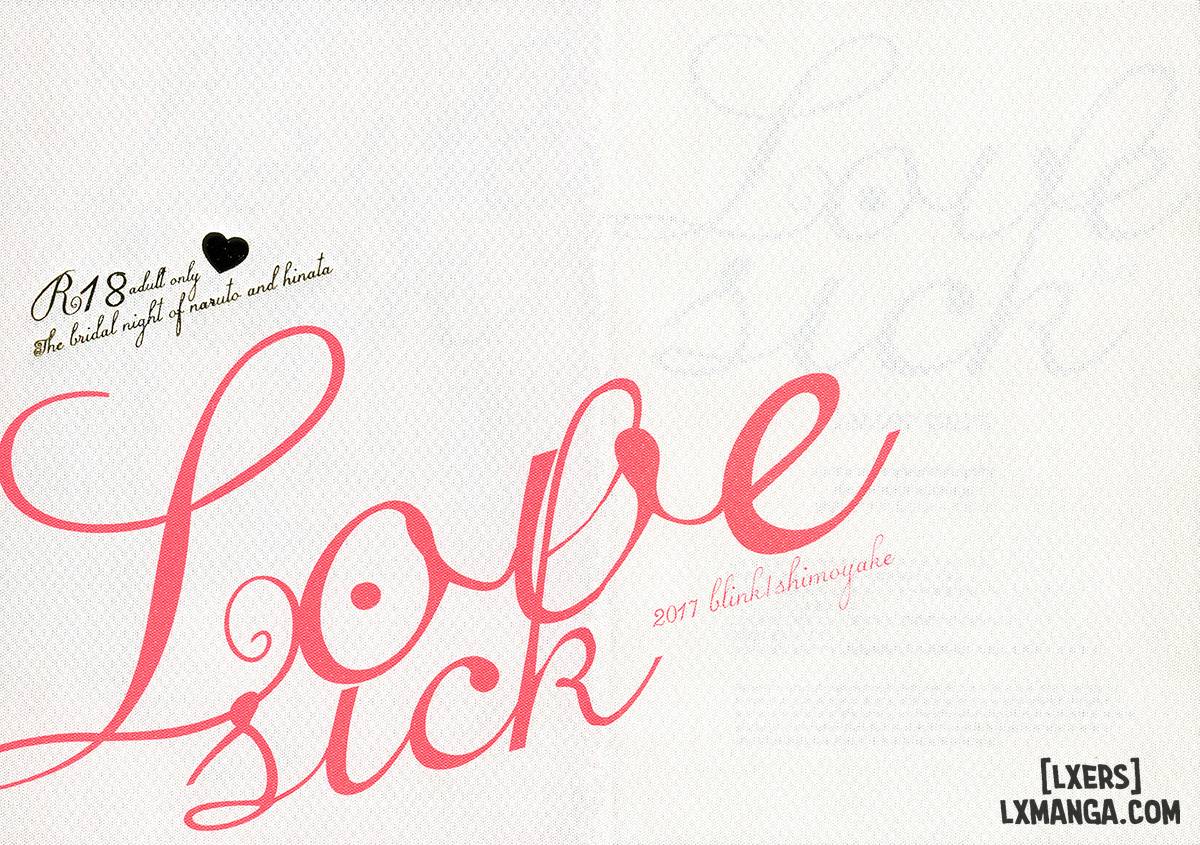 R18 adult only
The bridal night of naruto and hinata
Love
sick
2017 blink/shimoyake
[LXERS]
LXMANGA.COM
Love
sick